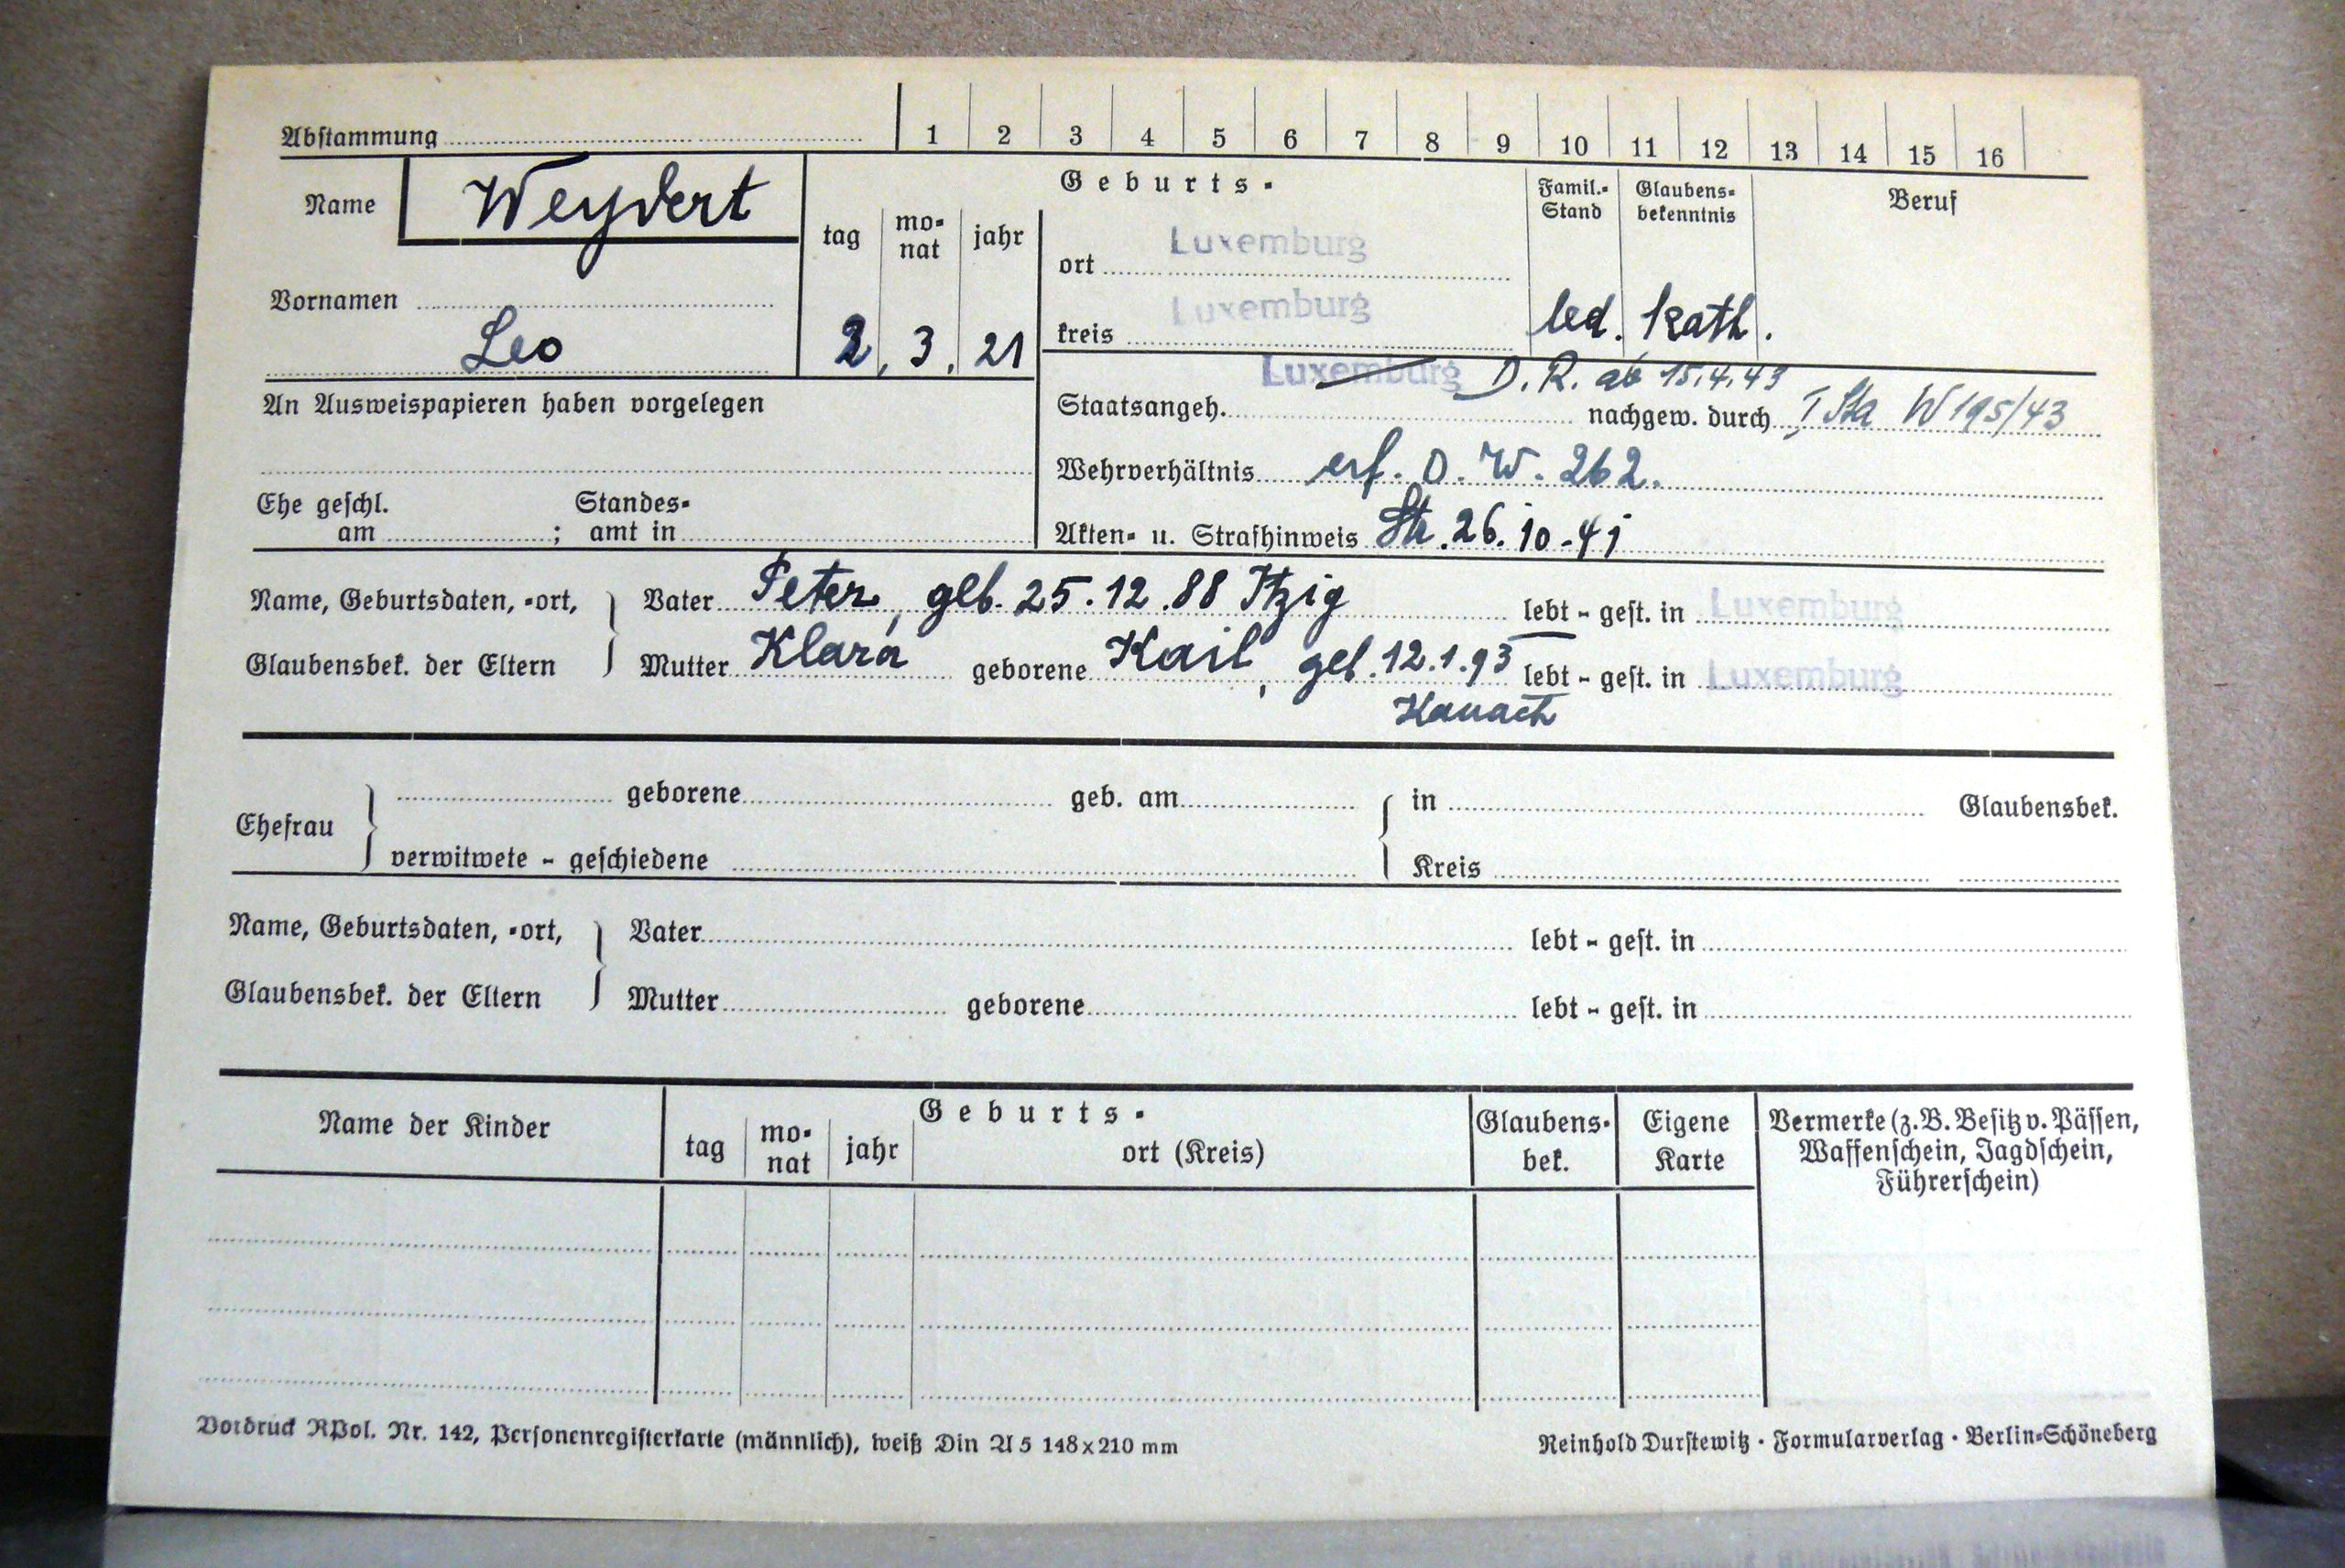 Abstammung 1 2 3 4 5 6 7 8 9 10 11 12 13 14 15 16
Name Weydert
Geburts-
tag monat jahr
Famil.-Stand Glaubens-bekenntnis Beruf
ort Luxemburg
Vornamen Leo
2. 3. 21
kreis Luxemburg
led. kath.
An Ausweispapieren haben vorgelegen
Luxemburg D. R. ab 15.4.43
Staatsangeh. nachgew. durch I Sta W 195/43
Wehrverhältnis erf. D. W. 262.
Ehe geschl. am ; Standes-amt in
Akten- u. Strafhinweis Str. 26.10.41
Name, Geburtsdaten, -ort, Vater Peter, geb. 25.12.88 Itzig lebt - gest. in Luxemburg
Glaubensbek. der Eltern Mutter Klara geborene Kail, geb. 12.1.93 lebt - gest. in Luxemburg
Kanach
Ehefrau geborene geb. am in Glaubensbek.
verwitwete - geschiedene Kreis
Name, Geburtsdaten, -ort, Vater lebt - gest. in
Glaubensbek. der Eltern Mutter geborene lebt - gest. in
Name der Kinder
Geburts-
tag monat jahr ort (Kreis)
Glaubens-bek.
Eigene Karte
Vermerke (z. B. Besitz v. Pässen,
Waffenschein, Jagdschein,
Führerschein)
Vordruck RPol. Nr. 142, Personenregisterkarte (männlich), weiß Din A 5 148 x 210 mm
Reinhold Durstewitz · Formularverlag · Berlin-Schöneberg